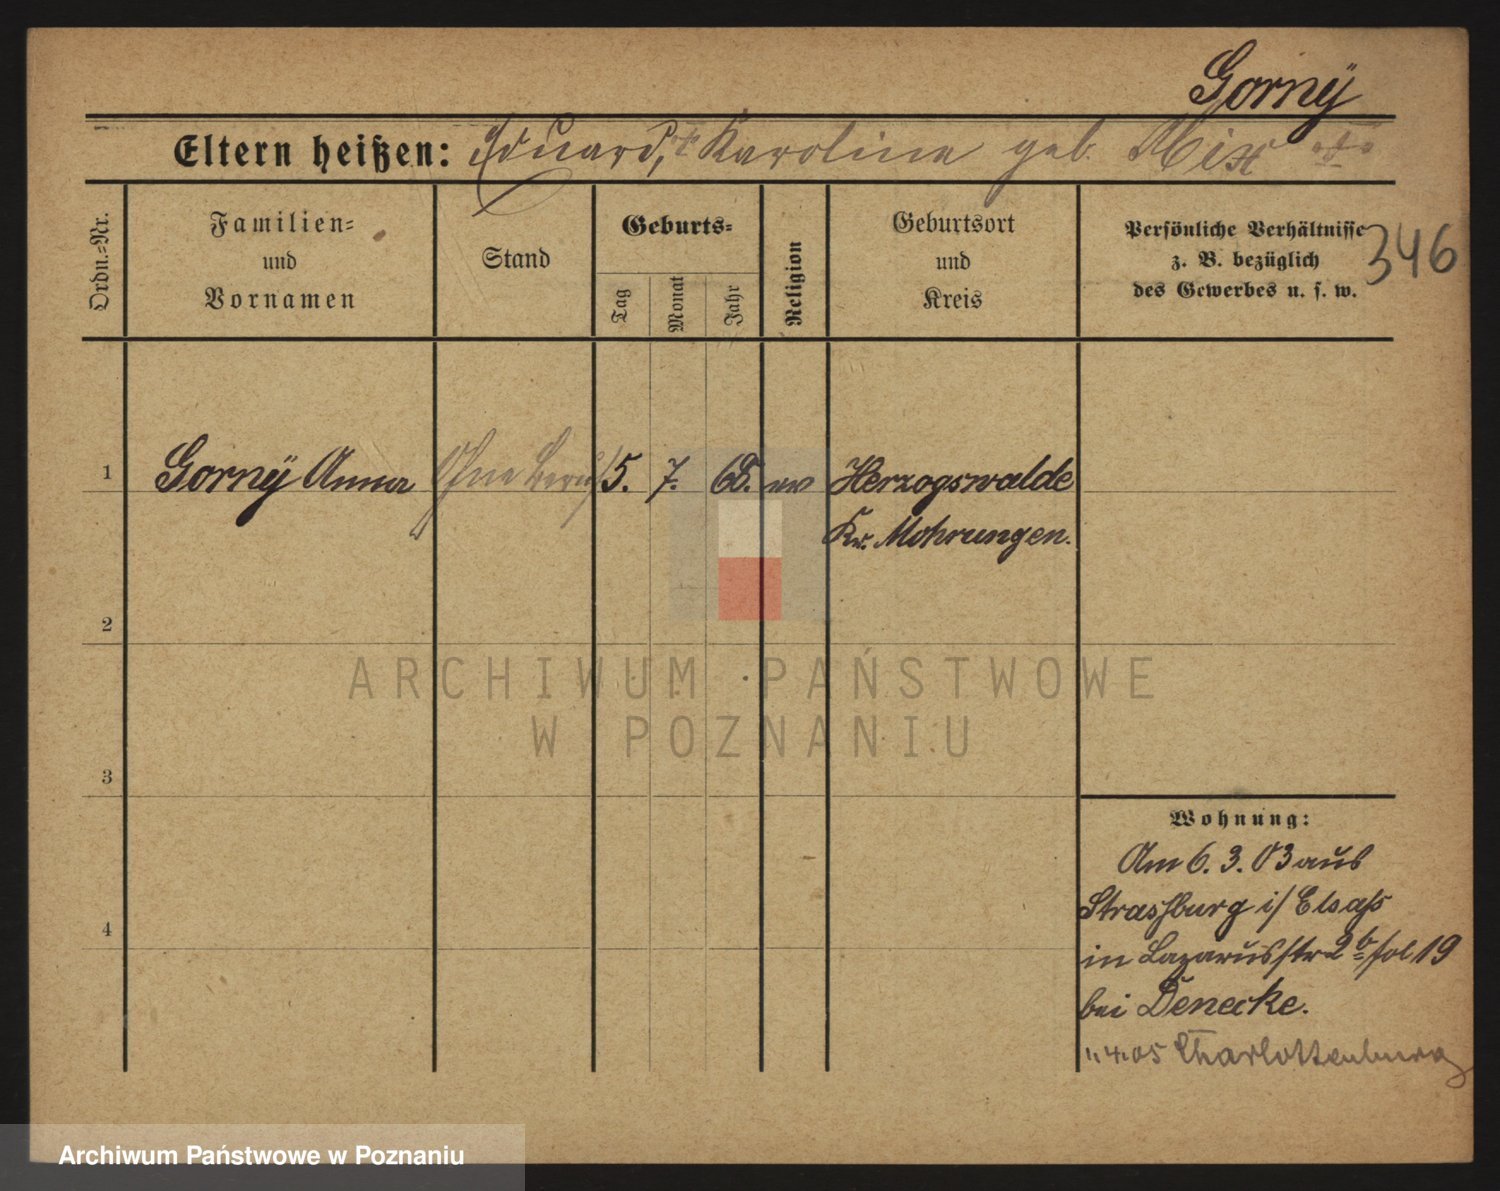 Gornÿ
Eltern heißen: Eduard, Karoline geb. Mix
346
Ordn.-Nr.
Familien-
und
Vornamen
Stand
Geburts-
Tag
Monat
Jahr
Religion
Geburtsort
und
Kreis
Persönliche Verhältnisse
z. B. bezüglich
des Gewerbes u. s. w.
1 Gornÿ Anna Ohne Beruf 5. 7. 68. ev Herzogswalde
Kr. Mohrungen.
2
3
4
Wohnung:
Am 6. 3. 03 aus
Strassburg i/ Elsaß
in Lazarusstr 2b fol 19
bei Denecke.
1.4.05 Charlottenburg
ARCHIWUM PAŃSTWOWE
W POZNANIU
Archiwum Państwowe w Poznaniu